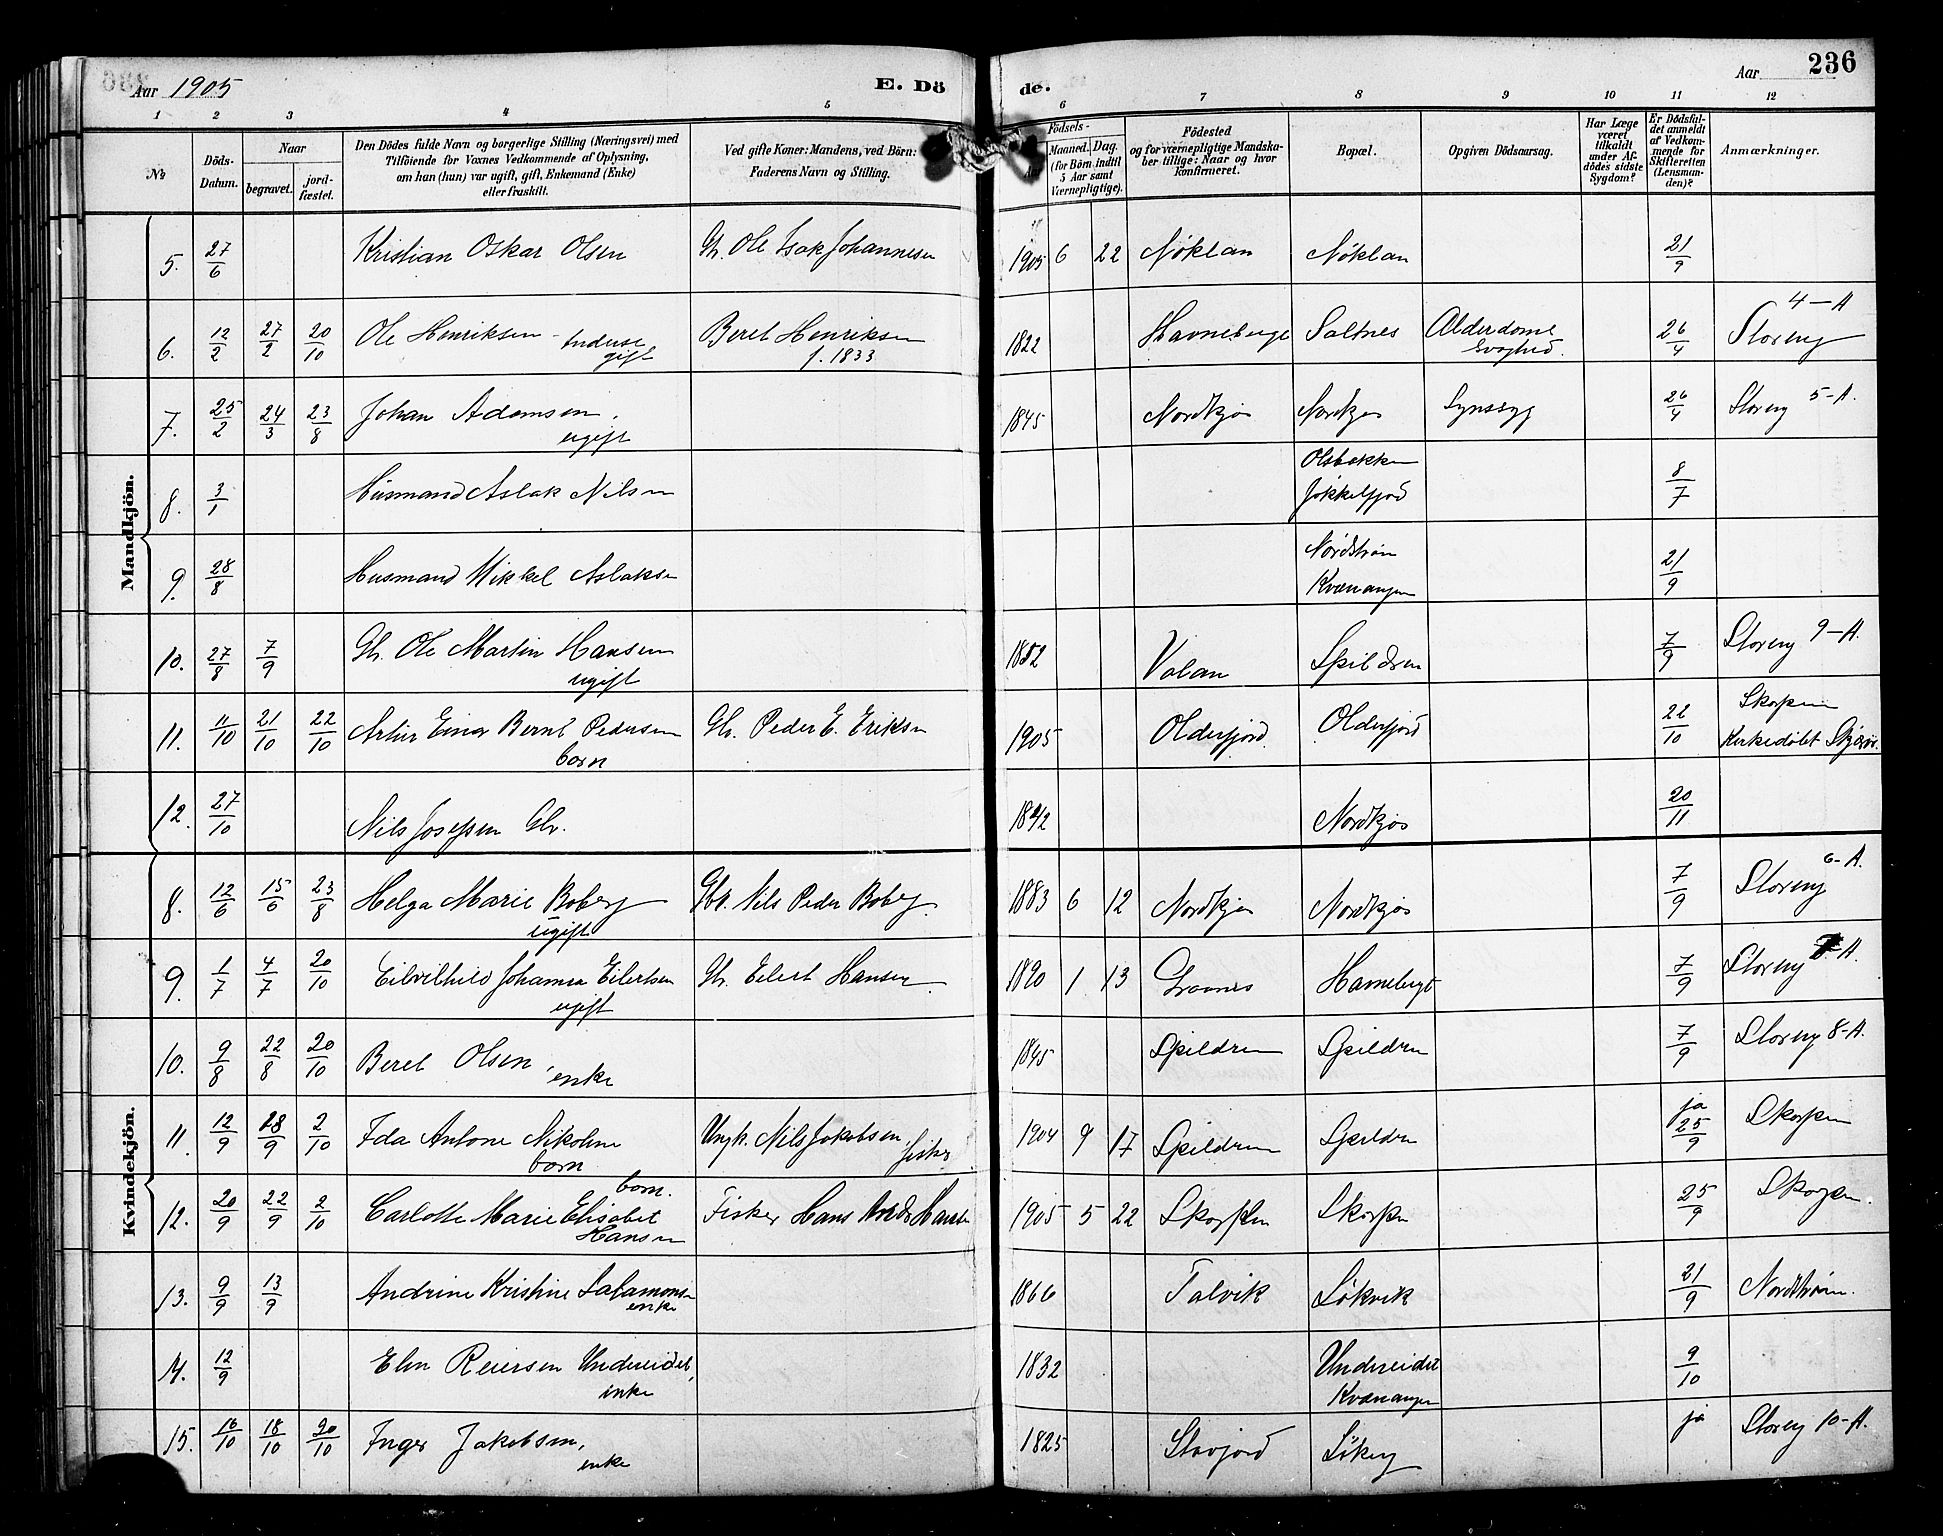 Aar 1905
E. Dö
de.
Aar
236
1 2 3 4 5 6 7 8 9 10 11 12
No
Döds-Datum.
Naar
begravet.
jord-fæstet.
Den Dödes fulde Navn og borgerlige Stilling (Næringsvei) med
Tilföiende for Voxnes Vedkommende af Oplysning,
om han (hun) var ugift, gift, Enkemand (Enke)
eller fraskilt.
Ved gifte Koner: Mandens, ved Börn:
Faderens Navn og Stilling.
Födsels-
Maaned. Dag.
(for Börn indtil
5 Aar samt
Værnepligtige).
Födested
og for værnepligtige Mandska-
ber tillige: Naar og hvor
konfirmeret.
Bopæl.
Opgiven Dödsaarsag.
Har Læge
været
tilkaldt
under Af-
dödes sidste
Sygdom?
Er Dödsfal-
det anmeldt
af Vedkom-
mende for
Skifteretten
(Lensman-
den)?
Anmærkninger.
Mandkjön.
5. 27/6 Kristian Oskar Olsen Gbr. Ole Isak Johannesen 1905 6 22 Nøklan Nøklan 21/9
4-A
6. 12/2 27/2 20/10 Ole Henriksen - Inderse Beret Henriksen 1822 Havneberge Saltnes Alderdoms 26/4 Storeng
gift f. 1833 svaghed.
7. 25/2 24/3 23/8 Johan Adamsen. 1845 Nordkjos Nordkjos Synssyg 26/4 Storeng 5-A.
ugift
8. 3/1 Husmand Aslak Nilsen Olsbakken 8/7
Jøkkelfjord
9. 28/8 Husmand Mikkel Aslaksen Nordstrøm 21/9
Kvænangen
10. 27/8 7/9 Gbr. Ole Martin Hansen 1882 Valan Spildren 7/9 Storeng 9-A.
ugift
11. 11/10 21/10 22/10 Artur Einar Bernt Pedersen Gbr. Peder E. Eriksen 1905 Olderfjord. Olderfjord 22/10 Skorpen
barn Skjærvø.
12. 27/10 Nils Josefsen Gbr. 1842 Nordkjos 20/11
Kvindekjön.
6-A.
8. 12/6 15/6 23/8 Helga Marie Boberg Gbr. Nils Peder Boberg. 1883 6 12 Nordkjos Nordkjos 7/9 Storeng
ugift
9. 1/7 4/7 20/10 Eilvilhild Johanna Eilertsen Gbr. Eilert Hansen. 1890 1 13 Havnebergt 7/9 Storeng 7-A.
ugift
10. 9/8 22/8 20/10 Beret Olsen, 1845 Spildren Spildren 7/9 Storeng 8-A.
enke
11. 12/9 28/9 2/10 Ida Antone Nikoline Ungk. Nils Jakobsen, fisker 1904 9 17 Spildren Spildren ja 25/9 Skorpen
barn
barn.
12. 20/9 22/9 2/10 Carlotte Marie Elisabet Fisker Hans Hansen 1905 5 22 Skorpen Skorpen 25/9 Skorpen.
Hansen
13. 9/9 13/9 Andrine Kristine Salamonsen 1866 Talvik Søkvik 21/9 Nordstrøm.
enke
14. 12/9 Elen Reiersen Undereidet, 1832 Undereidet 9/10
enke Kvænangen
15. 16/10 18/10 20/10 Inger Jakobsen, 1825 Storfjord ja Storeng 10-A.
enke